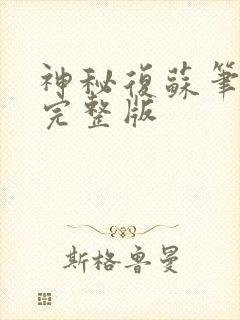 神秘復蘇筆
完整版
斯格魯曼